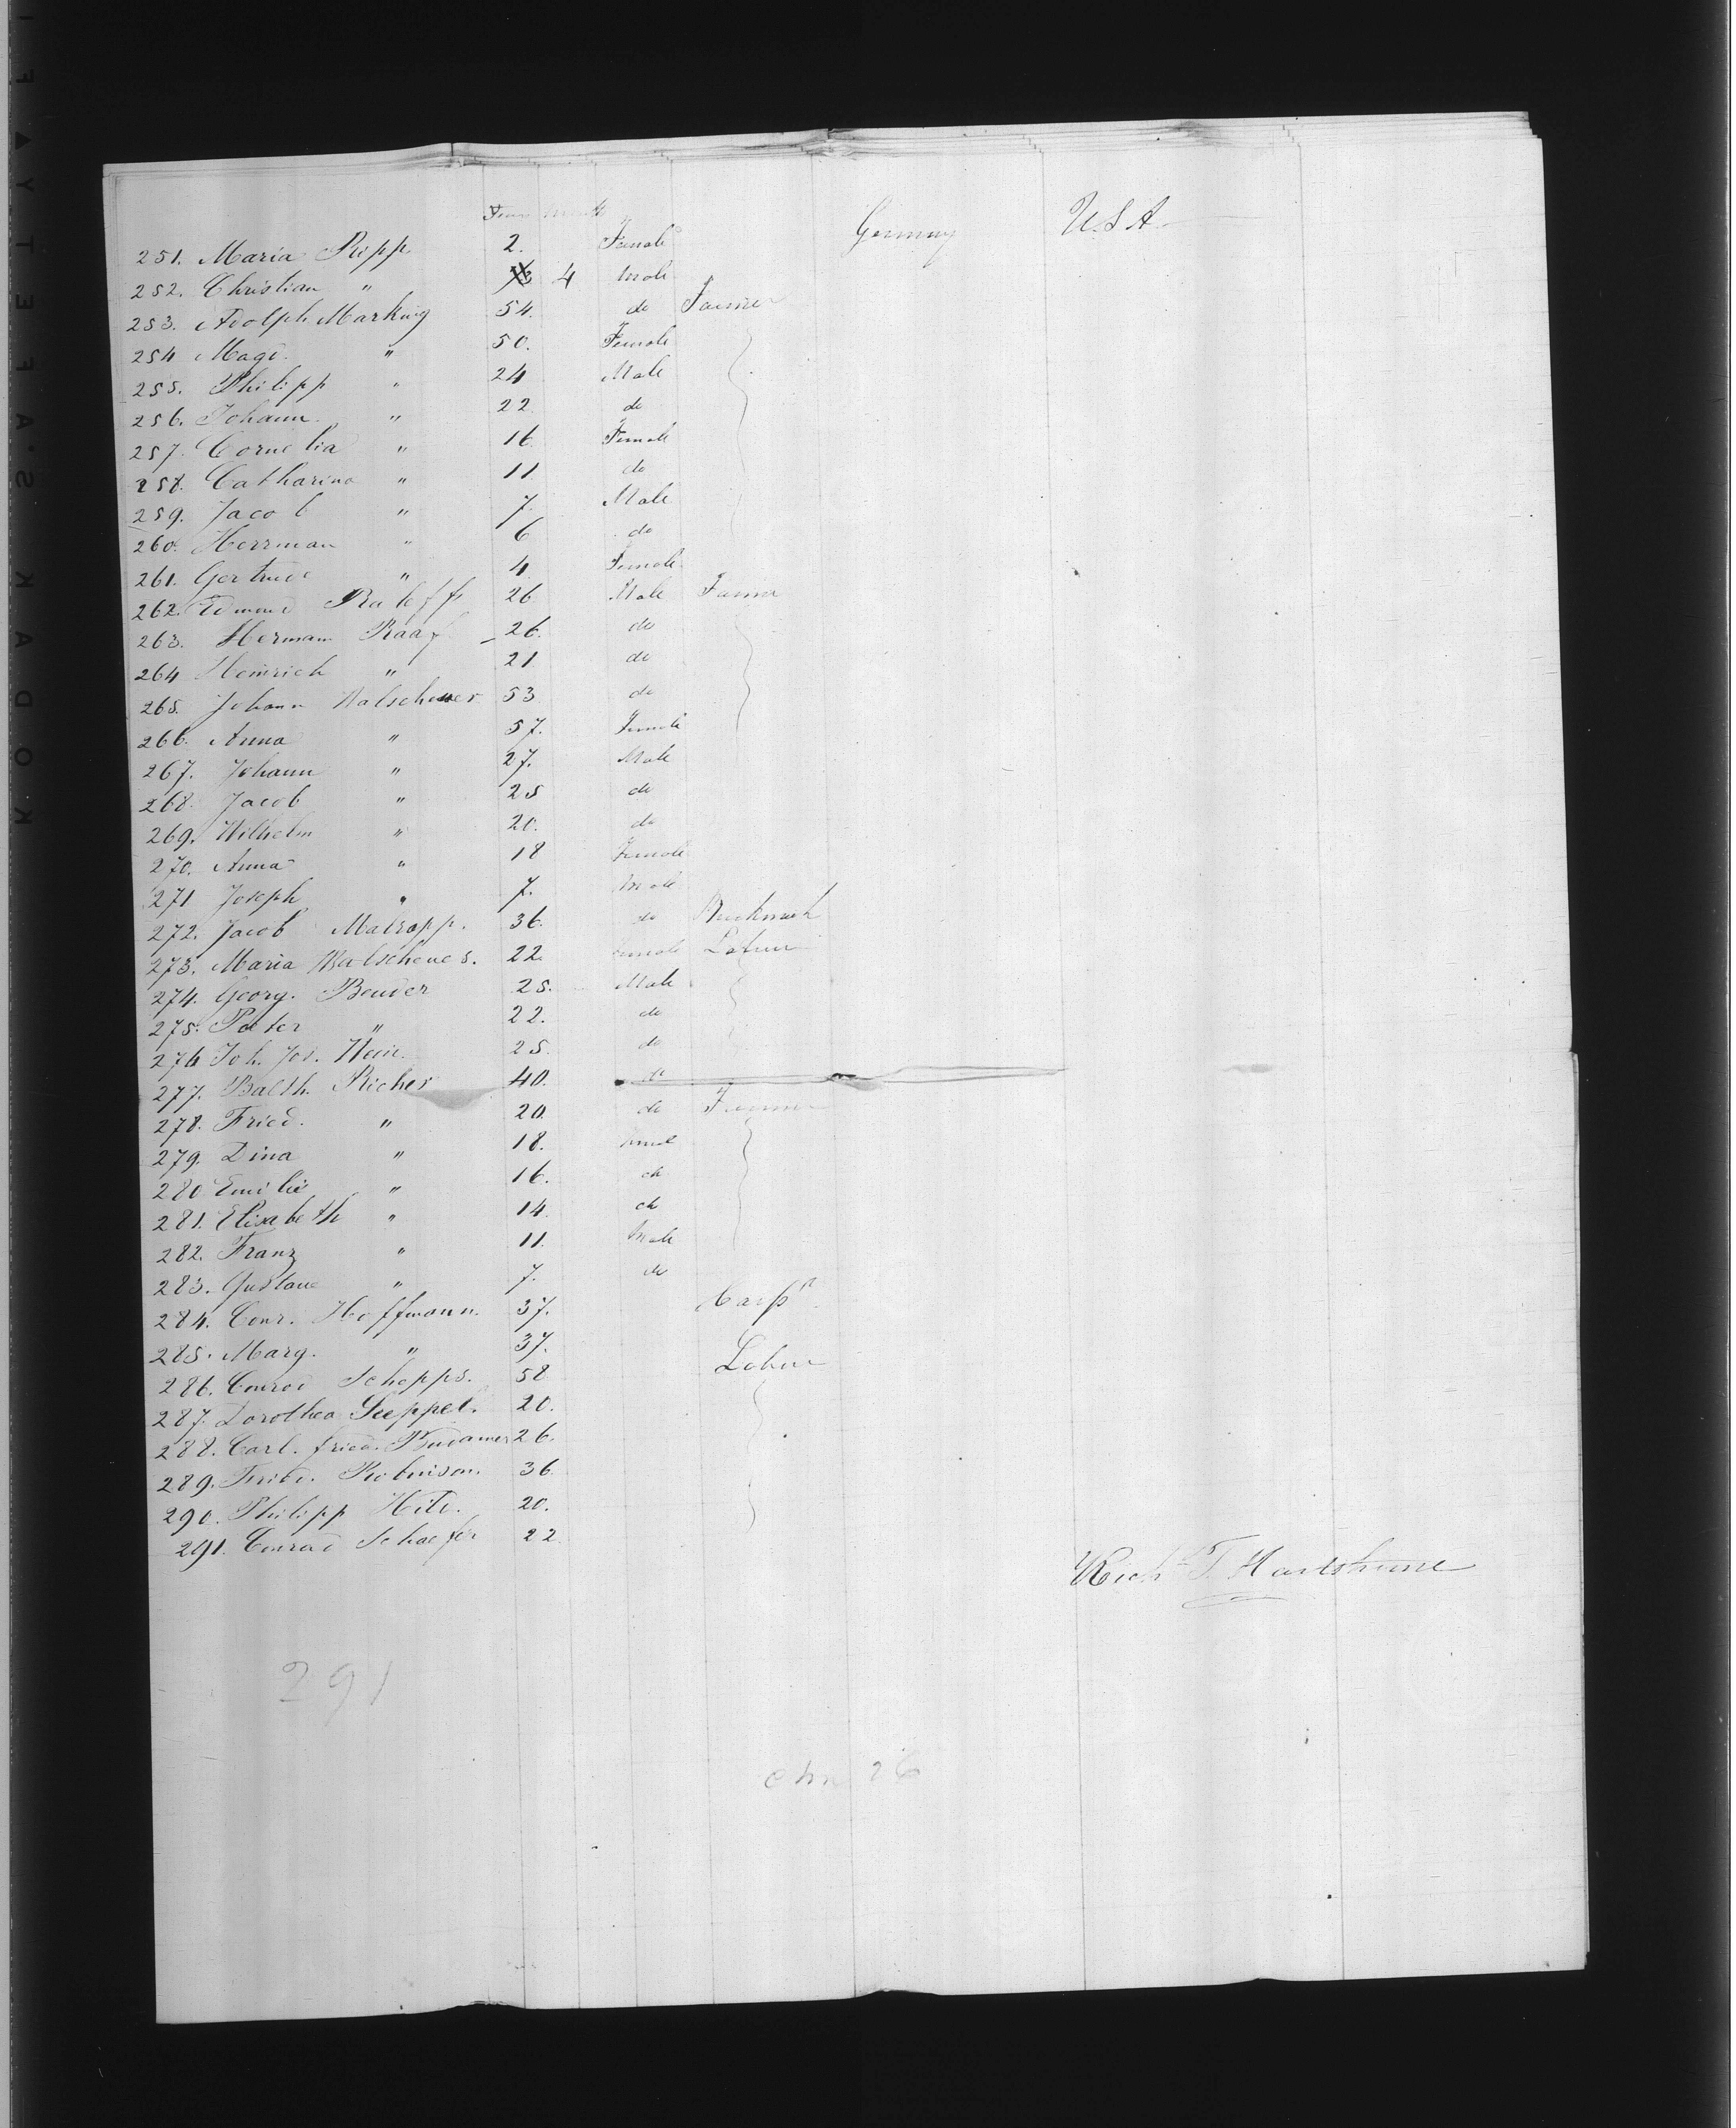 Years Month
251. Maria Ripp. 2. Female Germany U.S.A.
252. Christian " 4 Male
253. Adolph Marking 54. do Farmer
254 Magd. " 50. Female
255. Philipp " 24 Male
256. Johann " 22 do
257. Cornelia " 16 Female
258. Catharina " 11 do
259. Jacob " 7. Male
260. Herrman " 6 do
261. Gertrude " 4 Female
262. Edmund 26 Male Farmer
263. Hermann Raaf 26. do
264 Heinrich " 21 do
265. Johann 53 do
266. Anna " 57. Female
267. Johann " 27. Male
268. Jacob " 25 do
269. Wilhelm " 20. do
270. Anna " 18 Female
271 Joseph " 7. Male
272. Jacob Matrapp. 36. do
273. Maria 22. Female Labour
274. Georg. Bender 25. Male
275. Peter " 22. do
276 Joh. Jos. 25. do
277. Balth. Richer 40. do
278. Fried. " 20. do Farmer
279. Dina " 18.
280 Emilie " 16. do
281. Elisabeth " 14 do
282. Franz " 11. Male
283. Gustave " 7. do
284. Conr. Hoffmann. 37. Carpr
285. Marg. " 37.
286. Conrad Schepps. 58 Labour
287. Dorothea Seeppel. 20.
288. Carl. Fried. 26.
289. Fried. Robinson. 36
290. Philipp Hild. 20.
291. Conrad Schaefer 22
Richd T. Hartshorne
291
chn 26
KODAK SAFETY